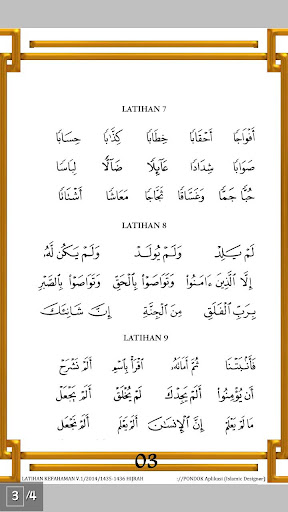 LATIHAN 7
أَفْوَاجًا أَحْقَابًا خِطَابًا كِذَّٰبًا حِسَابًا
صَوَابًا شِدَادًا عَآئِلًا ضَآلًّا لِبَاسًا
حُبًّا جَمًّا وَغَسَّاقًا ثَجَّاجًا مَعَاشًا أَشْتَاتًا
LATIHAN 8
لَمْ يَلِدْ وَلَمْ يُولَدْ وَلَمْ يَكُن لَّهُۥ
إِلَّا ٱلَّذِينَ ءَامَنُوا۟ وَتَوَاصَوْا۟ بِٱلْحَقِّ وَتَوَاصَوْا۟ بِٱلصَّبْرِ
بِرَبِّ ٱلْفَلَقِ مِنَ ٱلْجِنَّةِ إِنَّ شَانِئَكَ
LATIHAN 9
فَأَنۢبَتْنَا ثُمَّ أَمَاتَهُۥ ٱقْرَأْ بِٱسْمِ أَلَمْ نَشْرَحْ
أَن يُؤْمِنُوا۟ أَلَمْ يَجِدْكَ لَمْ يُخْلَقْ أَلَمْ يَجْعَلْ
مَا لَمْ يَعْلَمْ إِنَّ ٱلْإِنسَٰنَ أَلَمْ يَعْلَم أَلَمْ نَجْعَلْ
03
LATIHAN KEFAHAMAN V.1/2014/1435-1436 HIJRAH ://PONDOK Aplikasi (Islamic Designer)
3 /4